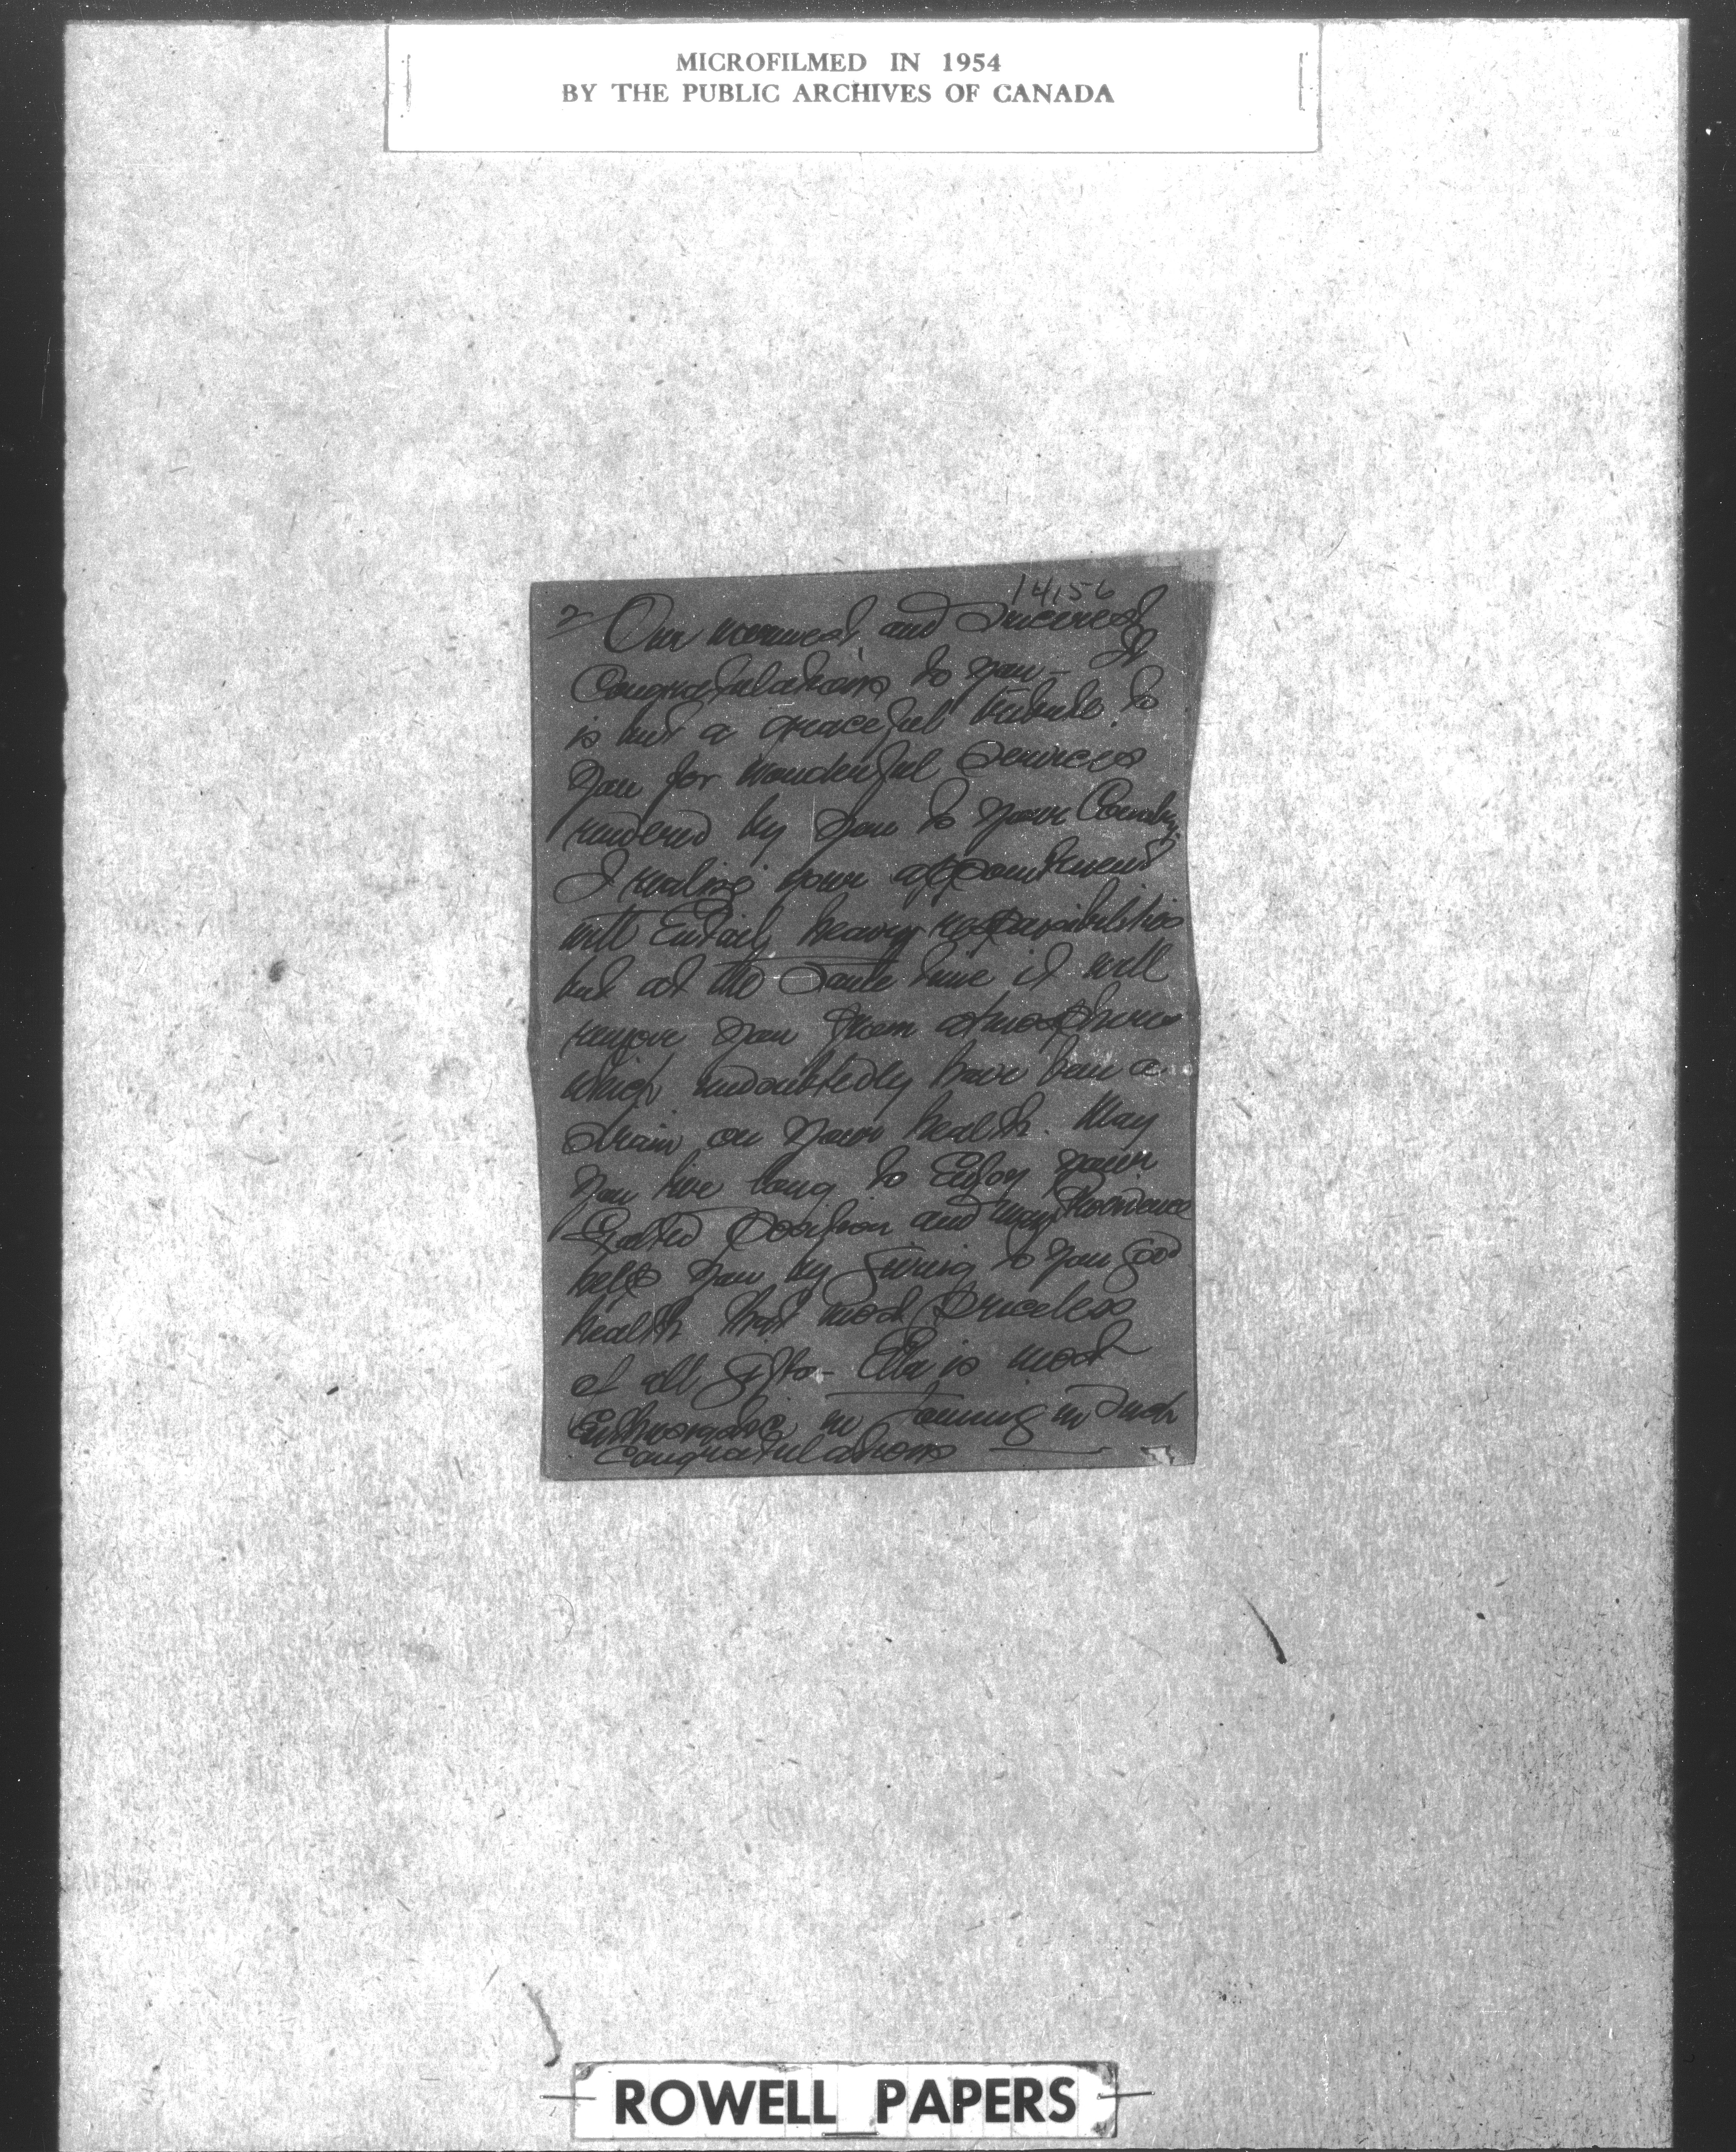 MICROFILMED IN 1954
BY THE PUBLIC ARCHIVES OF CANADA
14,156
2 Our warmest and Sincerest
Congratulations to you – It
is but a graceful tribute to
you for wonderful Services
rendered by you to your Country.
I realise your appointment
will Entail heavy responsibilities
but at the Same time it will
remove you from atmosphere
which undoubtedly have been a
strain on your health. May
you live long to Enjoy your
Exalted position and may Providence
help you by Giving to you Good
health that most priceless
of all Gifts – Ella is most
Enthusiastic in Joining in Such
Congratulations
ROWELL PAPERS